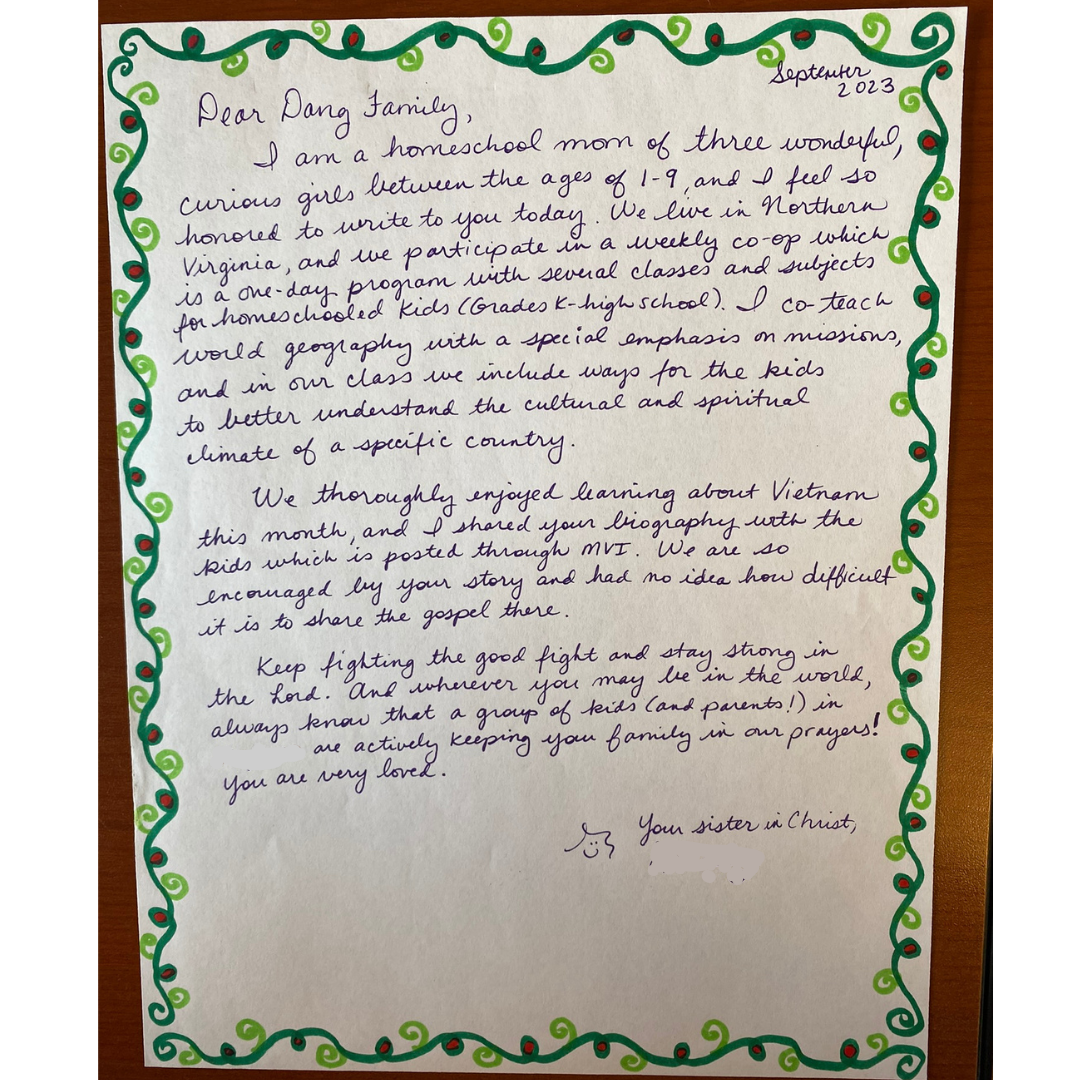 September
2023
Dear Dang Family,
I am a homeschool mom of three wonderful,
curious girls between the ages of 1-9, and I feel so
honored to write to you today. We live in Northern
Virginia, and we participate in a weekly co-op which
is a one-day program with several classes and subjects
for homeschooled kids (Grades K-high school). I co-teach
world geography with a special emphasis on missions,
and in our class we include ways for the kids
to better understand the cultural and spiritual
climate of a specific country.
We thoroughly enjoyed learning about Vietnam
this month, and I shared your biography with the
kids which is posted through MVI. We are so
encouraged by your story and had no idea how difficult
it is to share the gospel there.
Keep fighting the good fight and stay strong in
the Lord. And wherever you may be in the world,
always know that a group of kids (and parents!) in
are actively keeping your family in our prayers!
You are very loved.
Your sister in Christ,